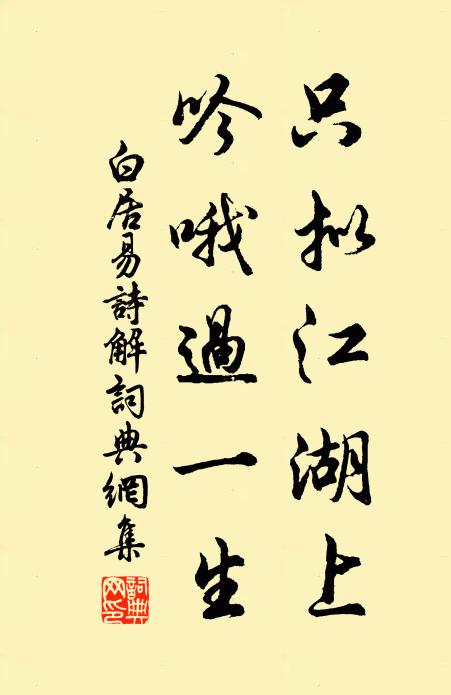 只拟江湖上
吟哦過一生
白居易詩解詞典網集
詞典网印